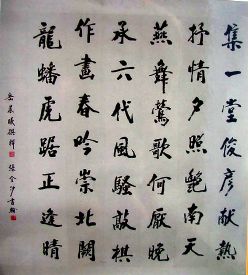 集一堂俊彦献热
抒情夕照艷南天
燕舞鶯歌何厭晚
承六代風騷敲棋
作畫春吟崇北闕
龍蟠虎踞正逢晴